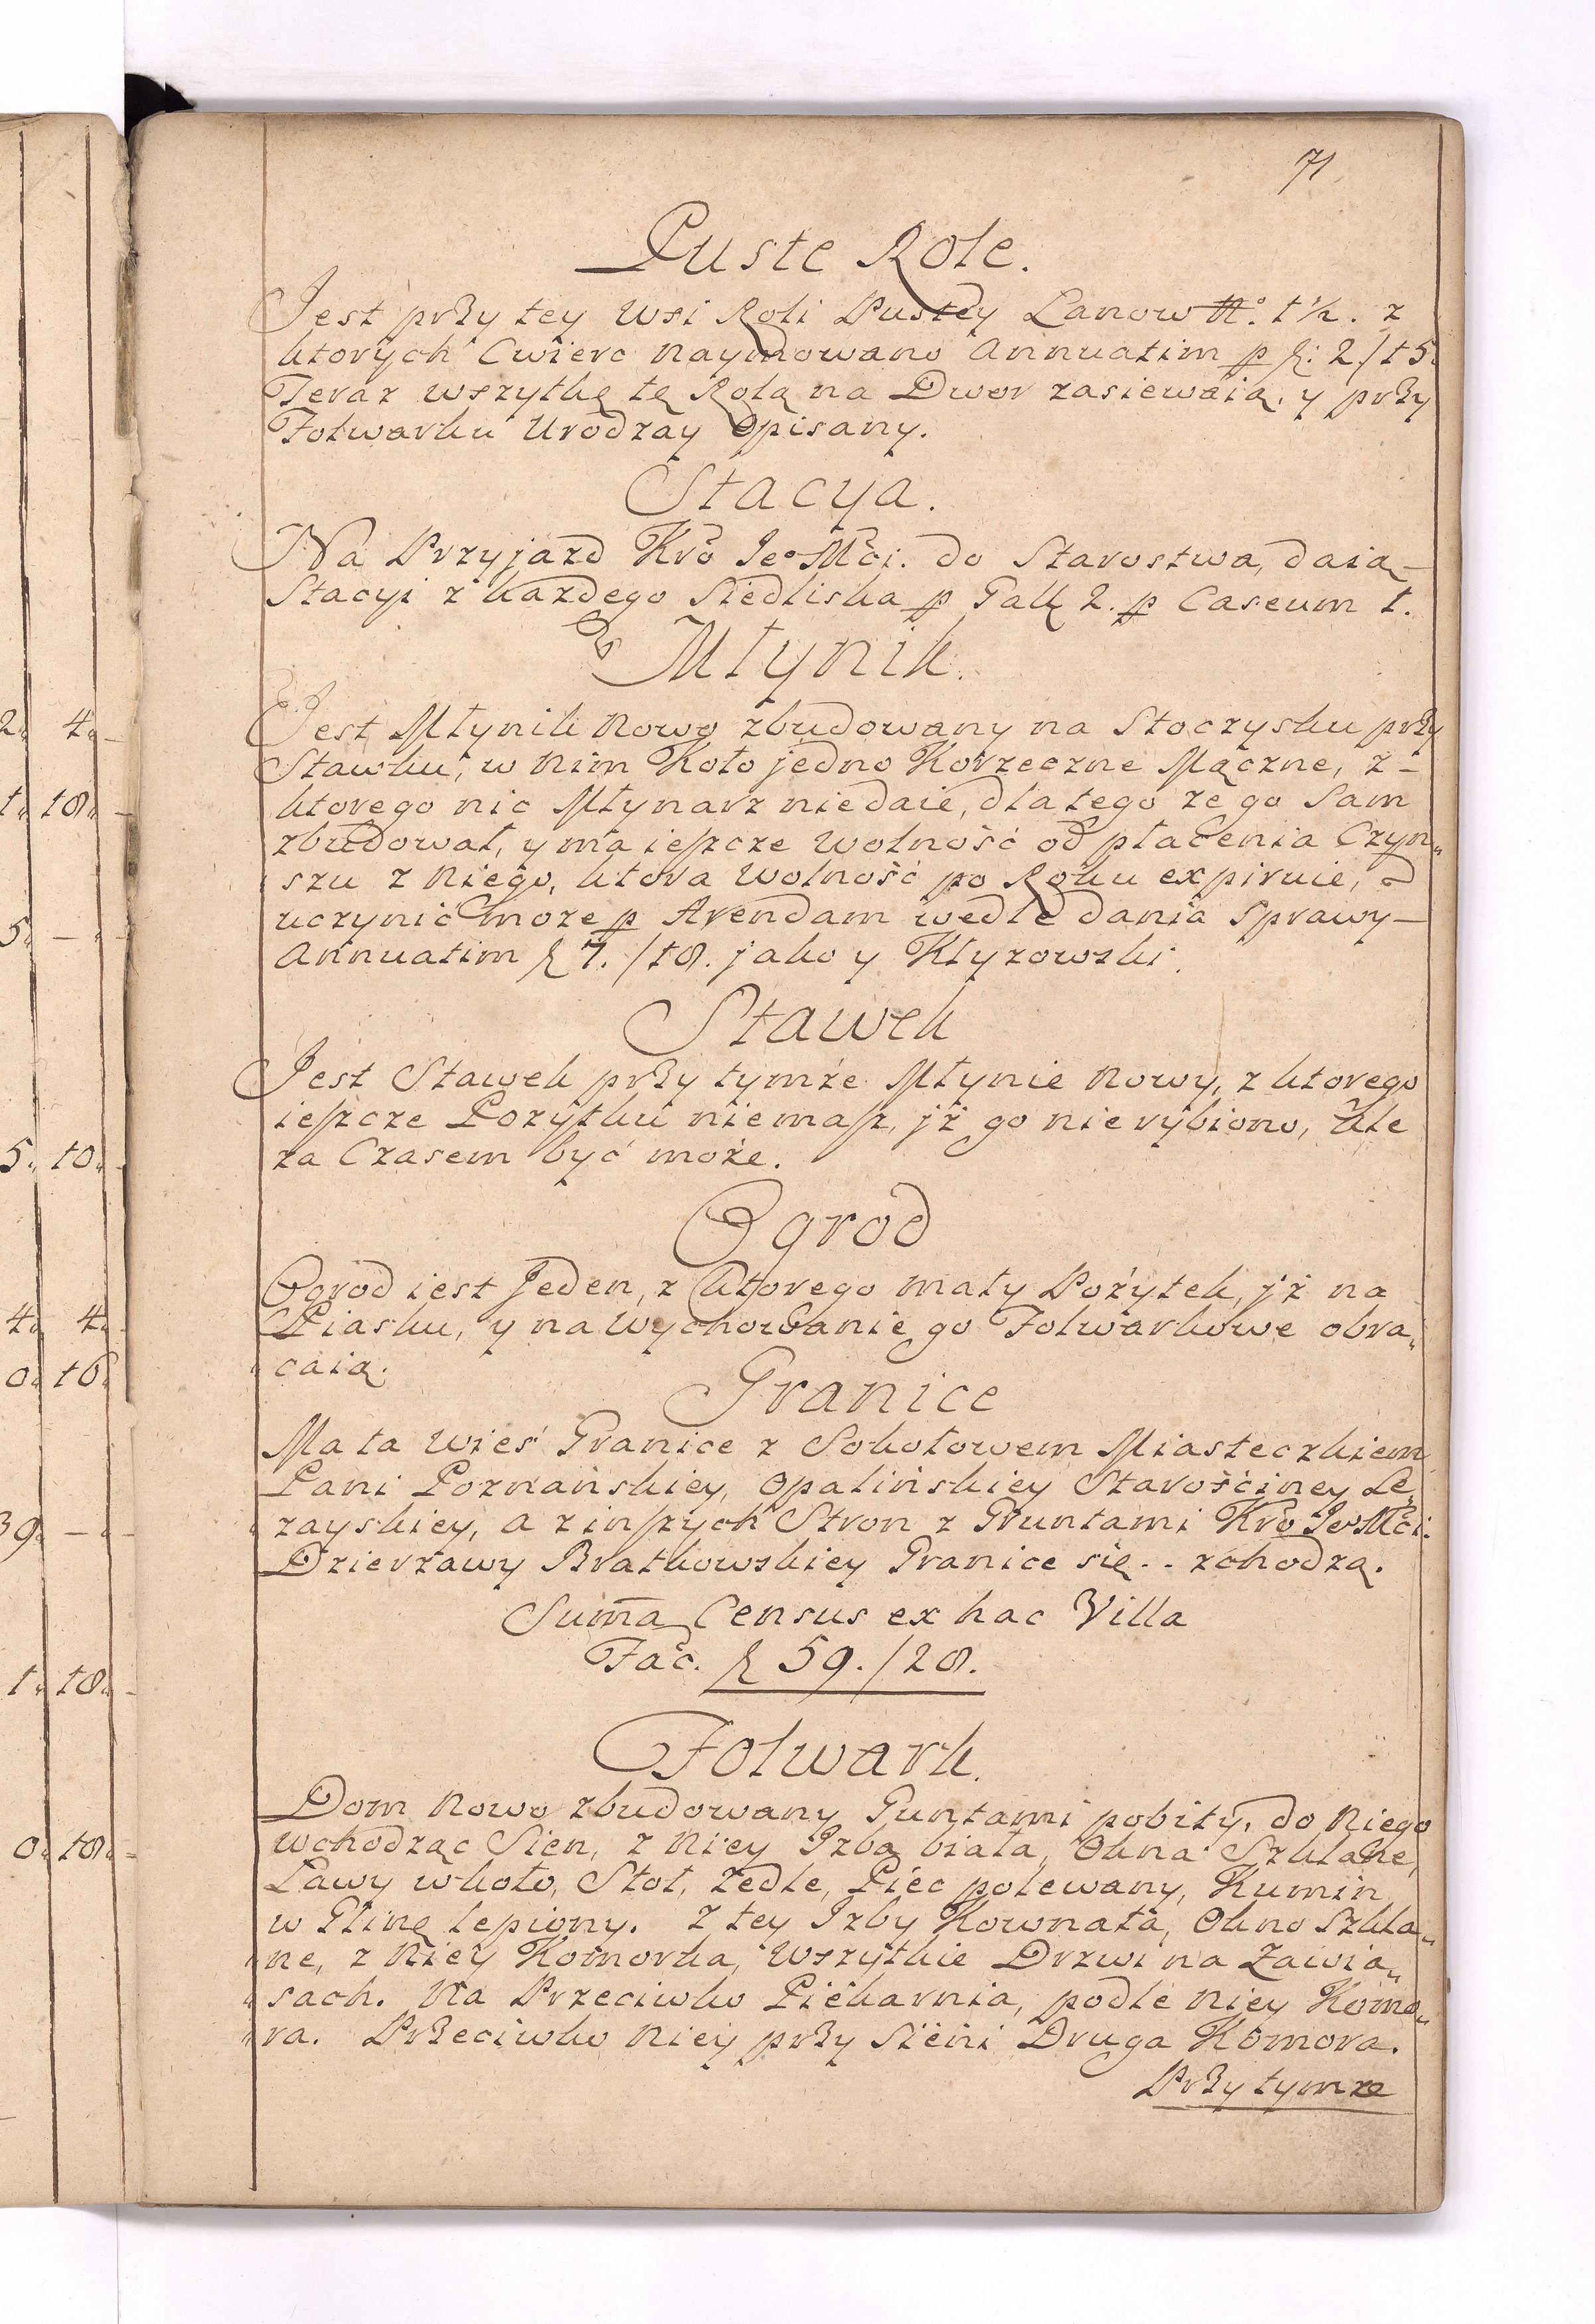 71
Puste Role.
Jest przy tey Wsi Roli Pustey Lanow No. 1½. z
ktorych Cwierc naymowano Annuatim p fl: 2/15
Teraz wszytkę tę Rolą na Dwor zasiewaią, y przy
Folwarku Urodzay Opisany.
Stacya.
Na Przyjazd Kro Jeo Mći. do Starostwa, daią
Stacyi z każdego Siedliska p Gall 2. p Caseum 1.
Młynik.
Jest Młynik nowo zbudowany na Stoczysku przy
Stawku, w nim Koło jedno Korzeczne Mączne, z-
ktorego nic Młynarz niedaie, dlatego że go Sam
zbudował, y ma ieszcze wolność od płacenia Czyn„
szu z niego, ktora Wolność po Roku expiruie, a
uczynić może p Arendam wedle dania Sprawy
Annuatim fl 7./18. jako y Kłyzowski.
Stawek
Jest Stawek przy tymże Młynie nowy, z ktorego
ieszcze Pożytku niemasz, jż go nierybiono, Ale
za Czasem być może.
Ogrod
Ogrod iest Jeden, z ktorego mały Pożytek, jż na
Piasku, y na Wychowanie go Folwarkowe obra„
caią.
Granice
Ma ta Wieś Granice z Sokołowem Miasteczkiem
Pani Poznańskiey, Opalińskiey Starościney Le„
żayskiey, a z inszych Stron z Gruntami Kro Jeo Mći.
Dzierżawy Bratkowskiey Granice się - - zchodzą.
Suma Census ex hac Villa
Fac. fl 59./28.
Folwark.
Dom nowo zbudowany Guntami pobity, do niego
wchodząc Sien, z niey Izba biała, Okna Szklane,
Ławy wkoło, Stoł, Zedle, Piec polewany, Kumin
w Glinę lepiony. Z tey Izby Kownata, Okno Szkla„
ne, z niey Komorka, Wszytkie Drzwi na Zawia„
sach. Na Przeciwko Piekarnia, podle niey Komo„
ra. Przeciwko niey przy Sieni Druga Komora.
Przy tymże
2„ 4„ -
1„ 18„ -
5„ - „ -
5„ 10„ -
4„ 4„
0„ 16„
39„ - „ -
1„ 18„ -
0„ 18„ -